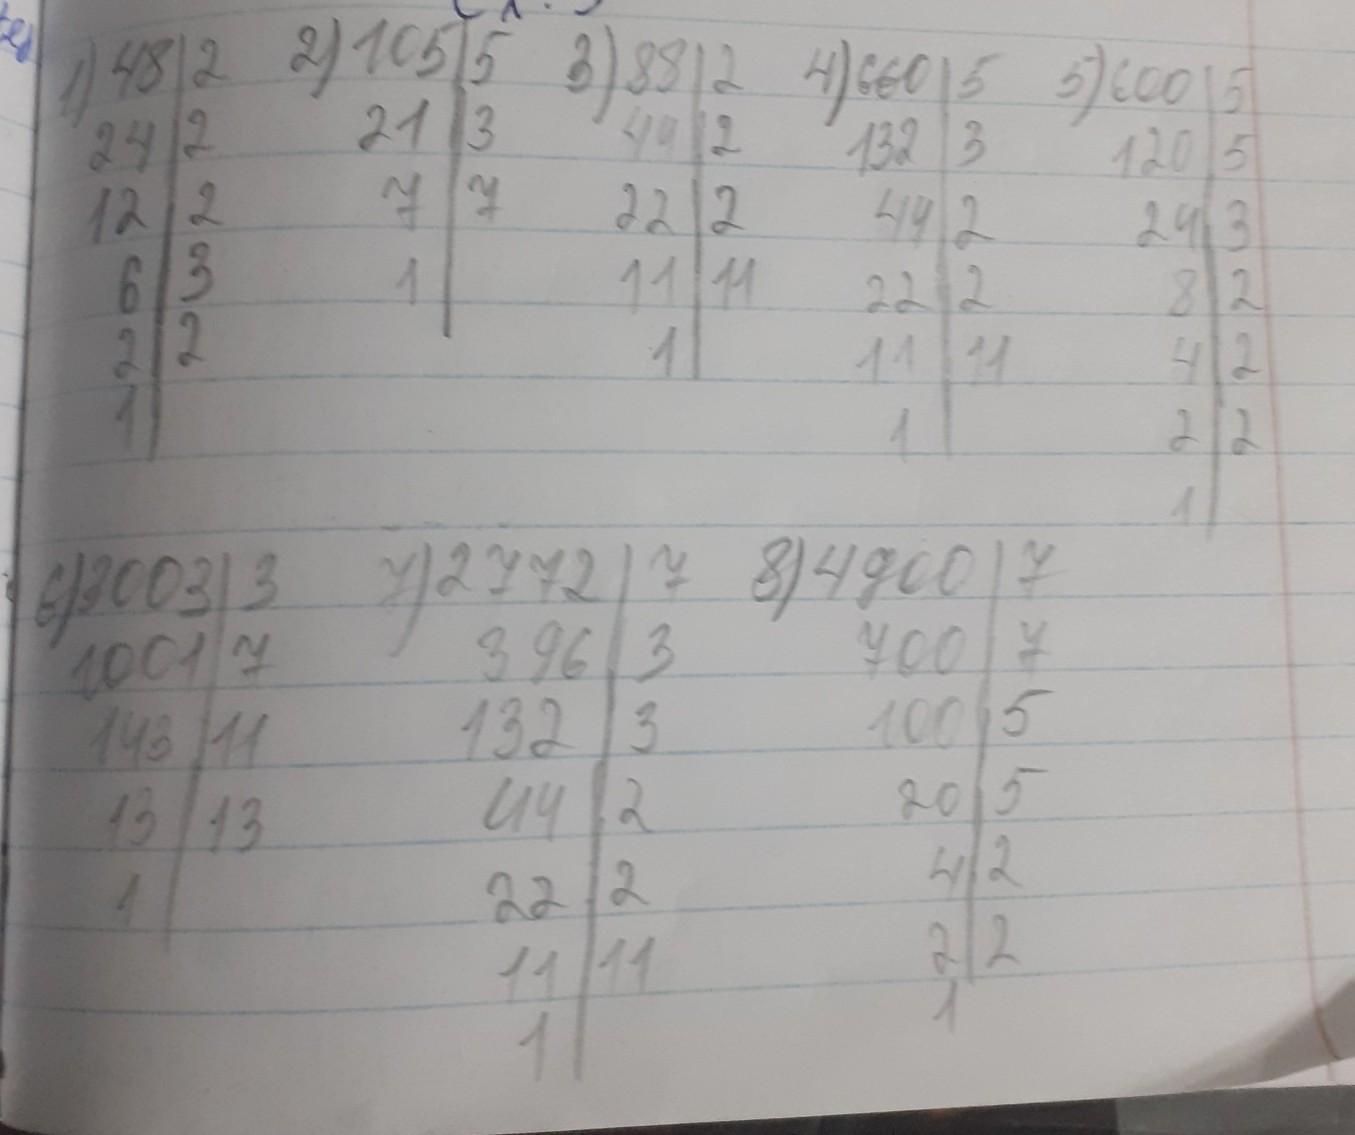 1) 48 | 2 2) 105 | 5 3) 88 | 2 4) 660 | 5 5) 600 | 5
24 | 2 21 | 3 44 | 2 132 | 3 120 | 5
12 | 2 7 | 7 22 | 2 44 | 2 24 | 3
6 | 3 1 | 11 | 11 22 | 2 8 | 2
2 | 2 1 | 11 | 11 4 | 2
1 | 1 | 2 | 2
1 |
6) 3003 | 3 7) 2772 | 7 8) 4900 | 7
1001 | 7 396 | 3 700 | 7
143 | 11 132 | 3 100 | 5
13 | 13 44 | 2 20 | 5
1 | 22 | 2 4 | 2
11 | 11 2 | 2
1 | 1